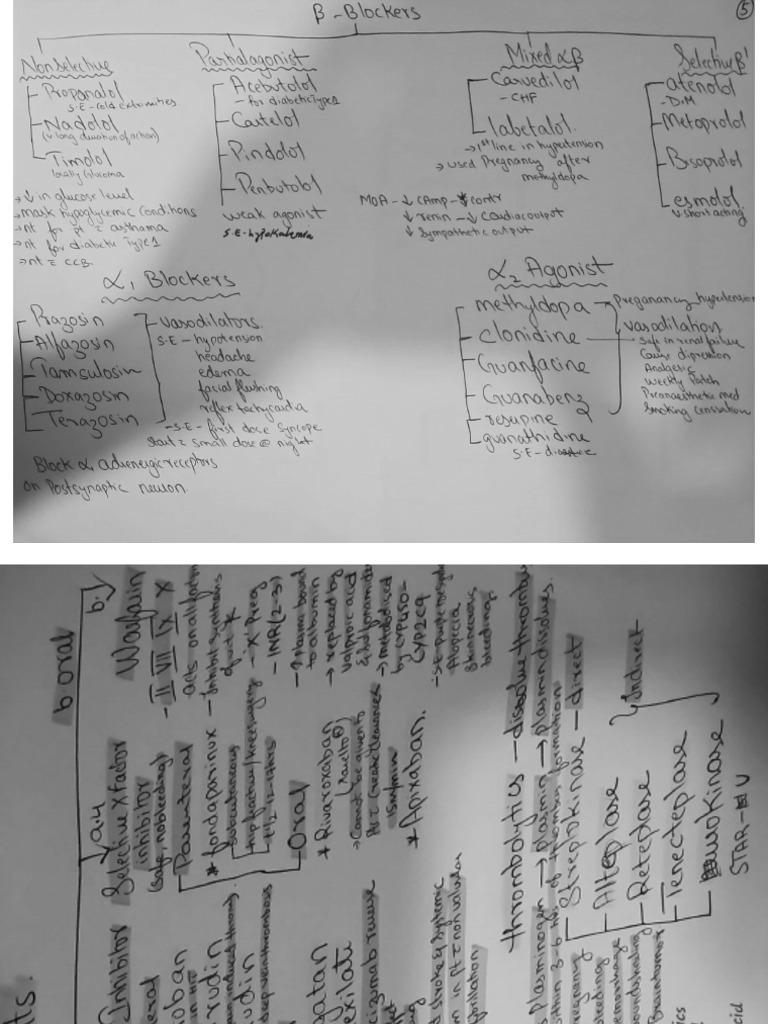 β-Blockers
5
Nonselective
Propanalol
S.E-cold extremities
Nadolol
(v long duration of action)
Timolol
locally Glucoma
→ ↓ in glucose level
→ mask hypoglycemic conditions
→ nt for pt c asthama
→ nt for diabetic Type 1
→ nt c CCB.
Partialagonist
Acebutolol
- for diabetic Type 1
Cartelol
Pindolol
Penbutolol
weak agonist
S.E-hypokalemia
Mixed αβ
Carvedilol
- CHF
labetalol.
→ 1st line in hypertension
→ used Pregnancy after
methyldopa
MOA - ↓ cAmp → contr
↓ renin - ↓ Cardiacoutput
↓ Sympathetic output
Selective β1
atenolol
- D.M
Metoprolol
Bisoprolol
esmolol
v short acting
α1 Blockers
Prazosin
Alfazosin
Tamsulosin
Doxazosin
Terazosin
vasodilators.
S.E - hypotension
headache
edema
facial flushing
reflex tachycardia
-S.E - first dose Syncope
Start c small dose @ night
Block α1 adrenergic receptors
on Postsynaptic neuron.
α2 Agonist
methyldopa → Preganancy hypertension
clonidine
Guanfacine
Guanabenz
resupine
guanathidine
S.E -
vasodilation
Safe in renal failure
Cause dipression
Analgesic
weekly Patch
Preanaesthetic med
Smoking censsation
b. oral
b.
Warfarin
- II VII IX X
acts on all factors
- Inhibit synthesis
of vit K
- X Preg
- INR (2-3)
- ↑ plasma bound
to albumin
→ replaced by
valproic acid
& sulfonamide
→ metabolized
by CYP450-
CYP2C9
Alopecia
bleeding.
a. Xa
Selective X factor
inhibitor
(safe, no bleeding)
Parenteral
* fondaparinux
subcutaneous
hip fracture/knee surgery
- t1/2 17-17hrs
Oral
* Rivaroxaban
(Xarelto)
→ Cannot be given to
15ml/min
* Apixaban.
Inhibitor
oban
rudin
udin
deep vein thrombosis
gatan
exilati
cizumab reverse
stroke & Systemic
m in Pt c non valvular
fibrillation
thrombolytics - dissolve thrombu
Plasminogen → Plasmin → Plasmin dissolves.
within 3-6 hrs of thrombus formation
Streptokinase - direct
Alteplase
Reteplase
Tenecteplase
urokinase
Indirect
STAR - U
regnancy
bleeding
emorrhage
Braintumor